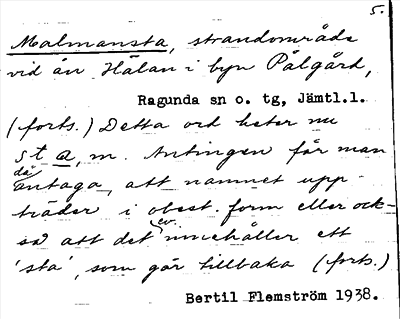 5.
Malmansta, strandområde
vid ån Hälan i byn Pålgård,
Ragunda sn o. tg, Jämtl.l.
(forts.) Detta ord heter nu
sta, m. Antingen får man
då antaga, att namnet upp-
träder i obest. form eller ock-
så att det ev. innehåller ett
'sta', som går tillbaka (forts.)
Bertil Flemström 1938.